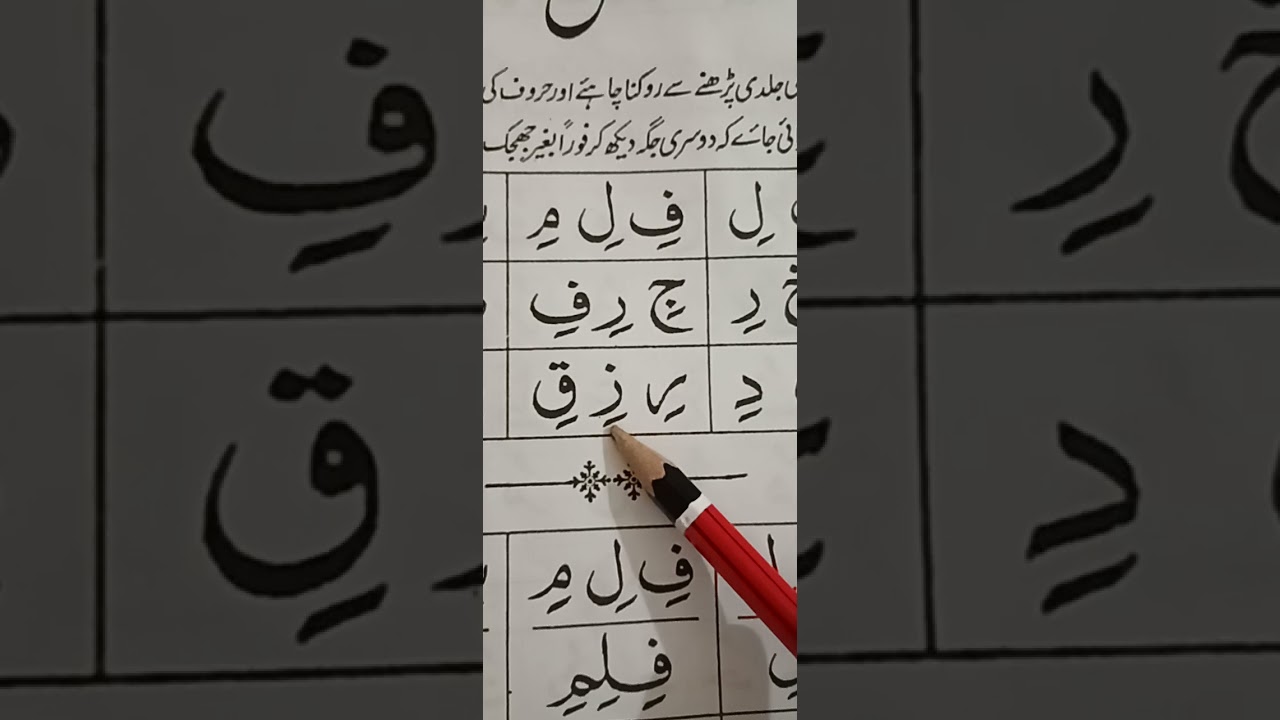 جلدی پڑھنے سے روکنا چاہئے اور حروف کی
جائے کہ دوسری جگہ دیکھ کر فوراً بغیر جھجک
لِ فِ لِ مِ
رِ جِ رِ فِ
دِ رِ زِ قِ
فِ لِ مِ
فِلِمِ